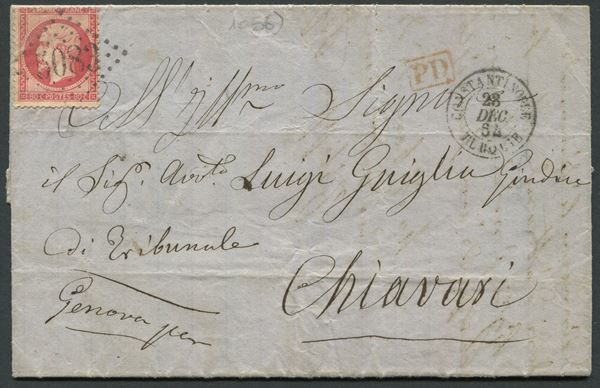 1866)
EMPIRE FRANC
80 C POSTES 80 C
5083
P.D.
CONSTANTINOPLE
23
DEC
64
TURQUIE
All' Ill.mo Signor
il Sig. Avv.to Luigi Guiglia Giudice
di Tribunale
Chiavari
Genova per